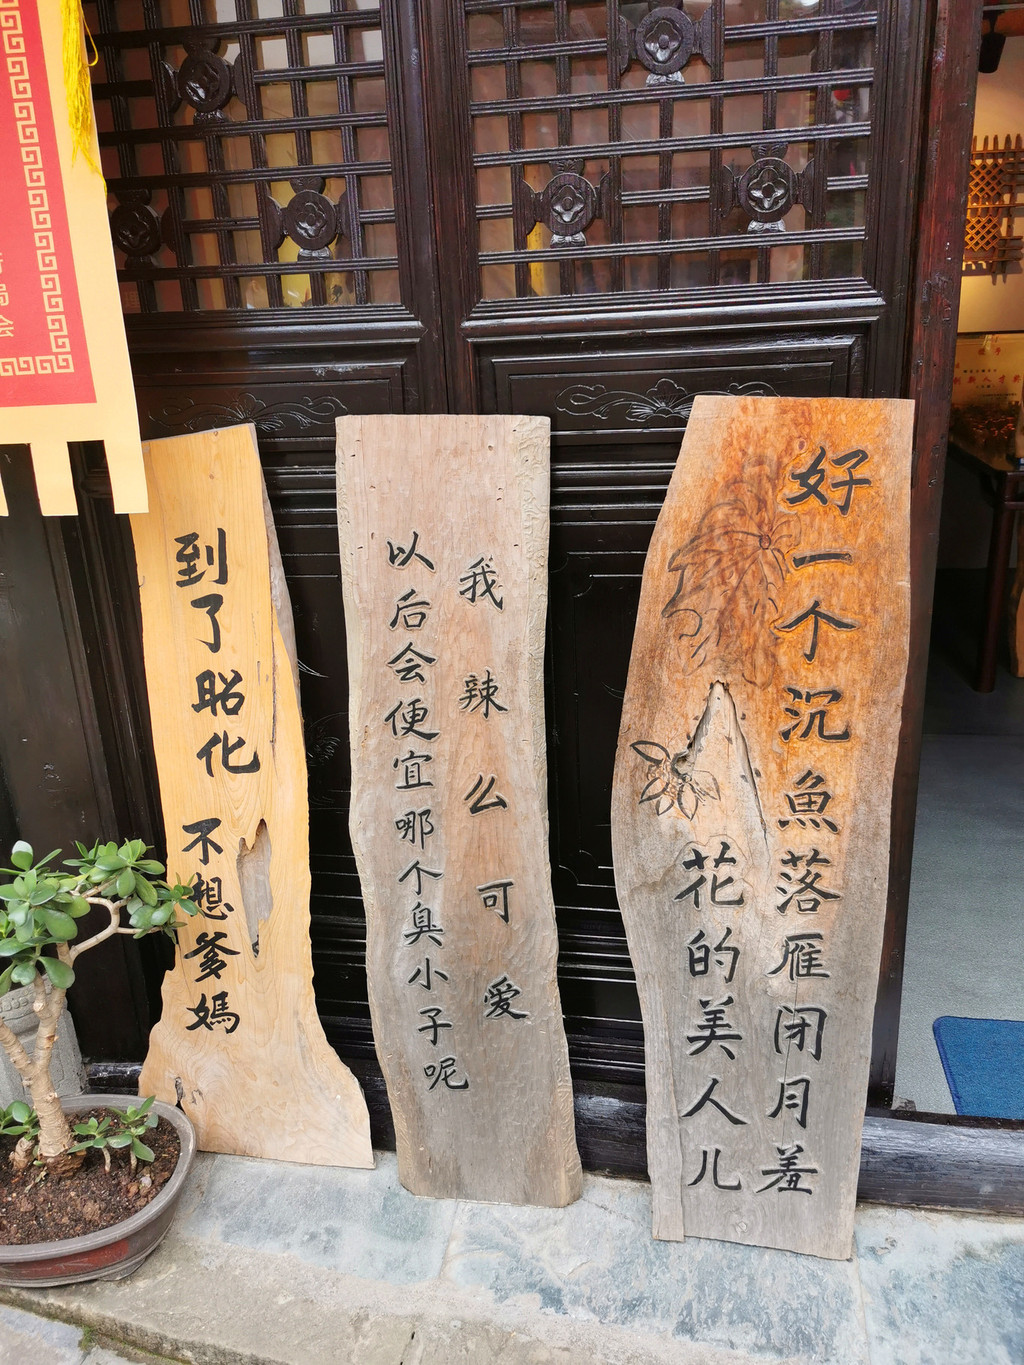 好一个沉魚落雁闭月羞
花的美人儿
我辣么可爱
以后会便宜哪个臭小子呢
到了昭化
不想爹媽